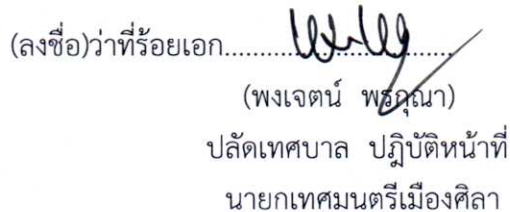 (ลงชื่อ)ว่าที่ร้อยเอก........................................
(พงเจตน์ พรกุณา)
ปลัดเทศบาล ปฏิบัติหน้าที่
นายกเทศมนตรีเมืองศิลา